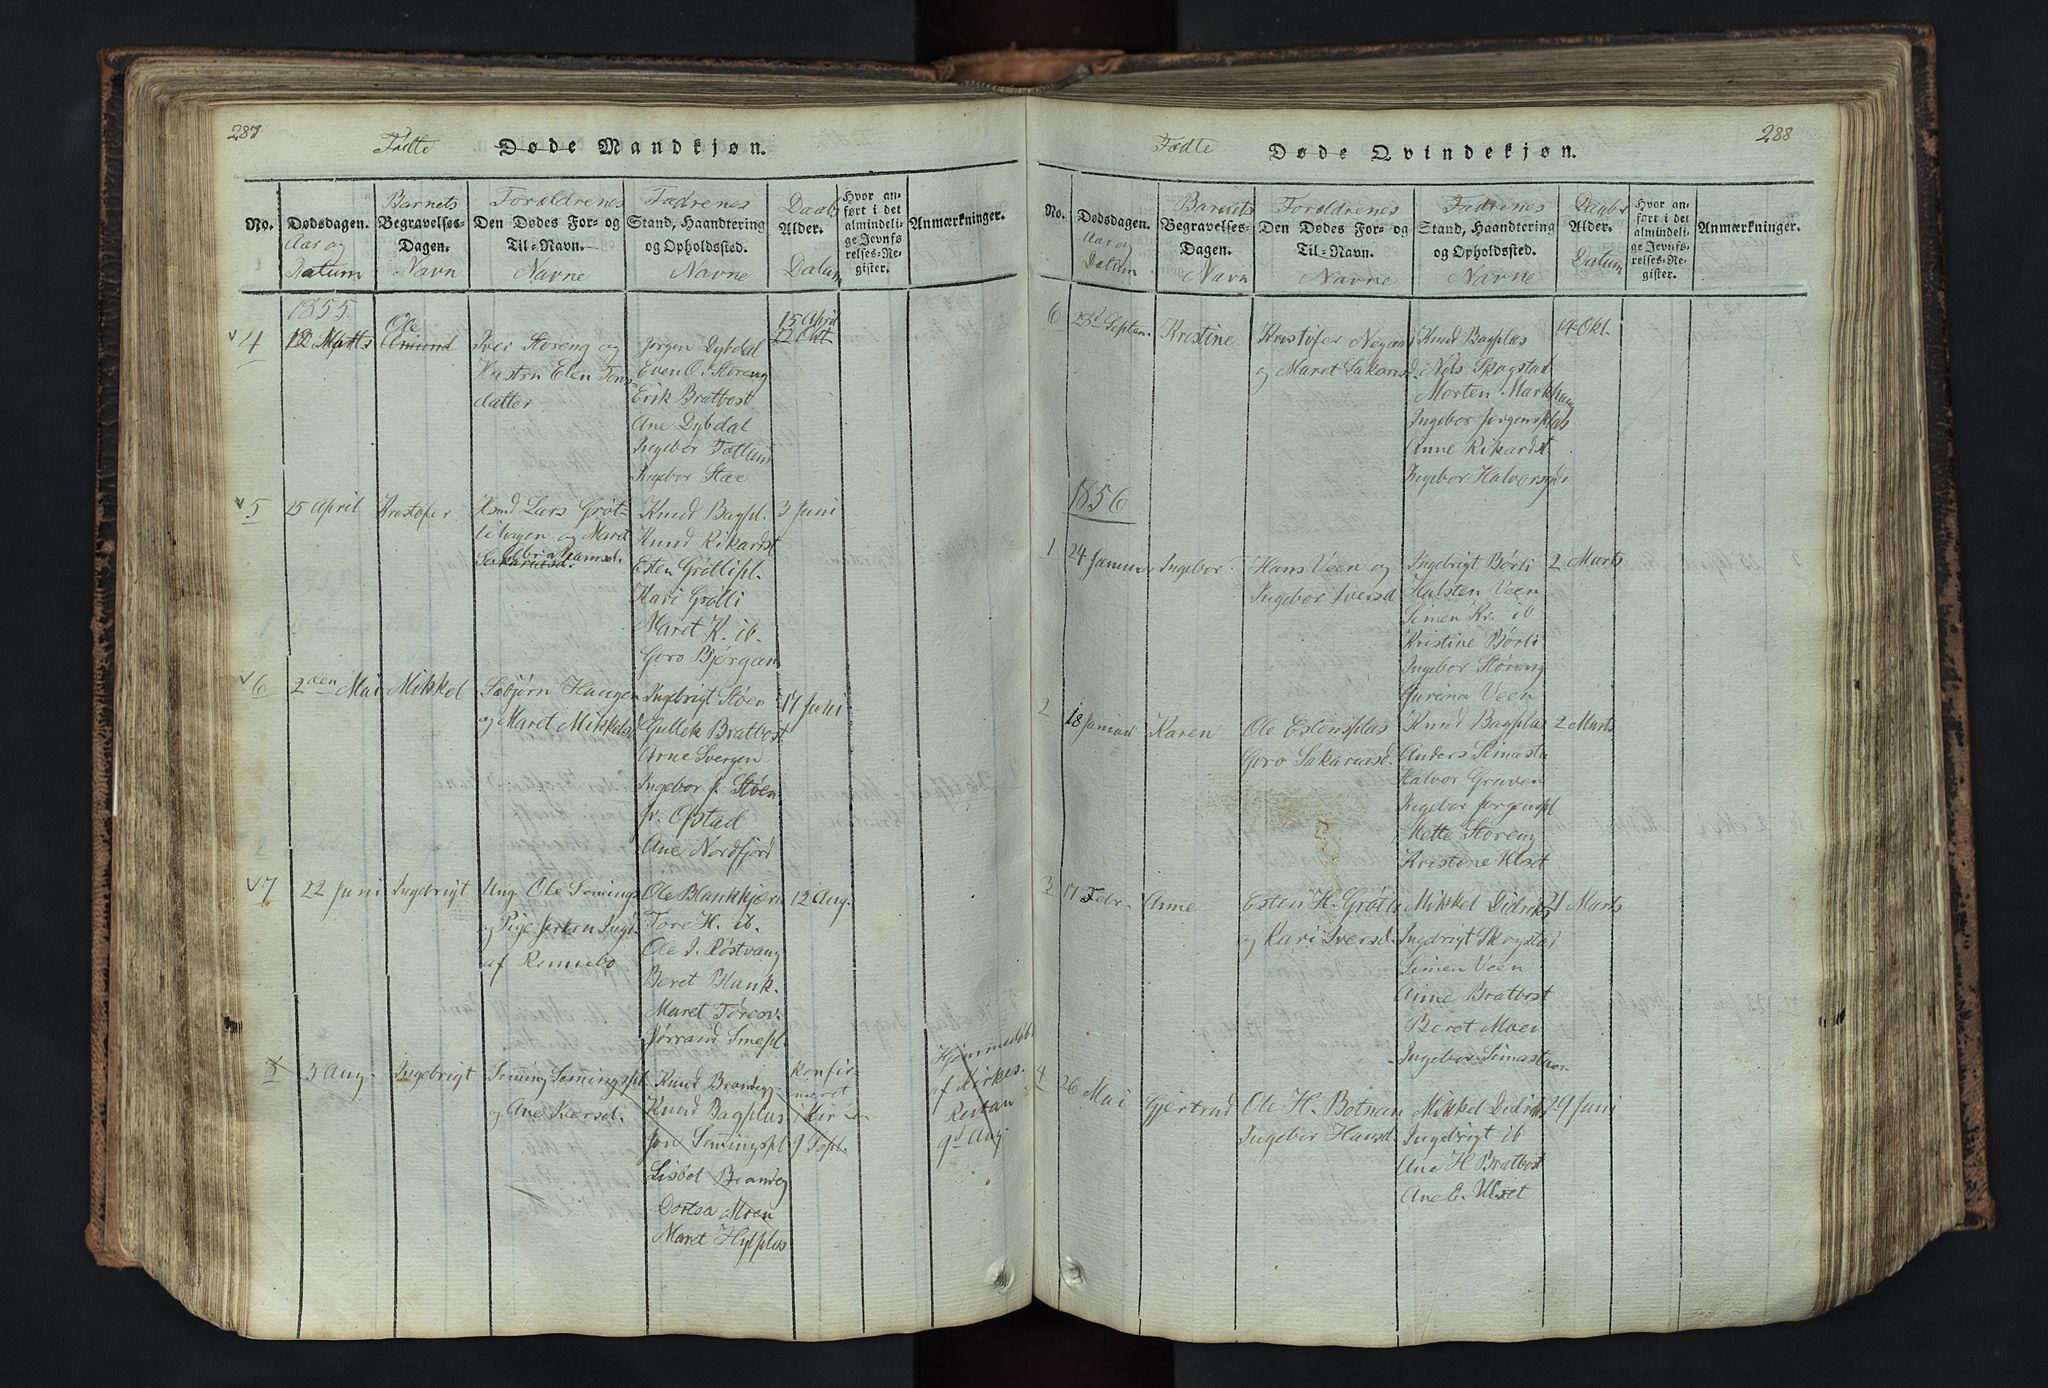 287
Fødte Døde Mandkjøn.
No.
Dødsdagen.
Aar og
Datum
Barnets
Begravelses-
Dagen.
Navn
Forældrenes
Den Dødes For- og
Til-Navn.
Navne
Fadrenes
Stand, Haandtering
og Opholdssted.
Navne
Daabs
Alder.
Datum
Hvor an-
ført i det
almindeli-
ge Jevnfø-
relses-Re-
gister.
Anmærkninger.
1855
4
12 Marts
Ole
Amund
Iver Storeng og
Hustru Elen Tøns-
datter
Jørgen Dybdal
Even O. Storeng
Erik Bratbost
Ane Dybdal
Ingebor Tætlum
Ingebor Stae
15 April
22 Okt
5
15 April
Kristofer
Lars Grøt-
lihagen og Maret
Abrahamsd.
Knud Bagpl.
Knud Rikardst
Esten Grøtlipl.
Kari Grøtli
Maret K. ib.
Goro Bjørgan
3 Juni
6
2den Mai
Mikkel
Sæbjørn Haugen
og Maret Mikkelsd
Ingebrigt Støen
Gullek Bratbost
Arne Svergen
Ingebor J. Støen
Jr. Opstad
Ane Nordfjord
17 Juni
7
22 Juni
Ingebrigt
Ung. Ole Semings
og Pige
af Rennebo
Ole Blankkjern
Tore H. ib.
Ole I. Røstvang
Beret Blank.
Maret Tøresv.
Jørrand Smepl.
12 Aug.
8
3 Aug.
Ingebrigt
Seming Semingspl
og Ane Iversd.
Knud Brandeg
Knud Bagplas
Jon Semingspl
Lisbet Brandeg
Dortea Moen
Maret Hylplas
Konfir-
meret
i Kir
9 Sept.
Hjemmedøbt
af Kirkes.
Restan
9d Aug.
288
Fødte Døde Qvindekjøn.
No.
Dødsdagen.
Aar og
Datum
Barnets
Begravelses-
Dagen.
Navn
Forældrenes
Den Dødes For- og
Til-Navn.
Navne
Fadrenes
Stand, Haandtering
og Opholdssted.
Navne
Daabs
Alder.
Datum
Hvor an-
ført i det
almindeli-
ge Jevnfø-
relses-Re-
gister.
Anmærkninger.
6
23d Septem.
Kristine
Kristofer
og Maret Sakariasd.
Knud Bagplas
Nils Skogstad
Morten Markhaug
Ingebor Jørgensplas
Anne Rikardst
Ingebor Halvorsgd
14 Okt.
1856
1
24 Januar
Ingebor
Hans Veen og
Ingebor Iversd
Ingebrigt Børli
Halsten Veen
Simen Kr. ib
Kristine Børli
Ingebor Støreng
Gurina Veen
2 Marts
2
18 Januar
Karen
Ole Estensplas
Goro Sakariasd.
Knud Bagplas
Anders Simastu
Halvor Graven
Ingebor Jørgenspl
Mette Storeng
Kristine Ulset
2 Marts
3
17 Febr.
Anne
Esten H. Grøtli
og Kari Iversd.
Mikkel Didriks
Ingebrigt Skogstad
Simen Veen
Anne Bratbost
Beret Moen
Ingebor Simastuen
21 Marts
4
26 Mai
Gjertrud
Ole H. Botnan
Ingebor Hansd.
Mikkel Didriks
Ingebrigt ib
Ane H Bratbost
Ane E. Ulset
29 Juni